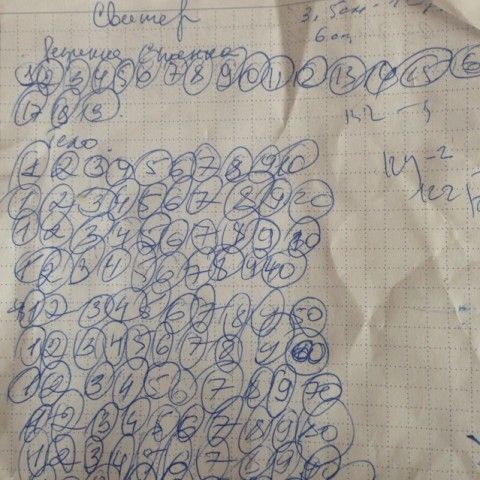 Свитер
3,5см
6см
Резинка спинка
1 2 3 4 5 6 7 8 9 10 11 12 13 14 15 16
17 18 19.
тело.
1 2 3 4 5 6 7 8 9 10
1 2 3 4 5 6 7 8 9 20
1 2 3 4 5 6 7 8 9 30
1 2 3 4 5 6 7 8 9 40
1 2 3 4 5 6 7 8 9 50
1 2 3 4 5 6 7 8 9 60
1 2 3 4 5 6 7 8 9 70
1 2 3 4 5 6 7 8 9 80
1 2 3 4 5 6 7 8 9